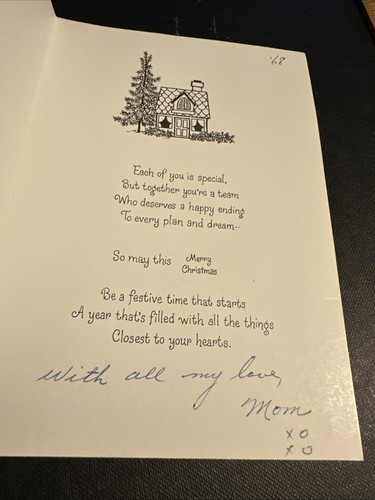 '68
Each of you is special,
But together you're a team
Who deserves a happy ending
To every plan and dream--
So may this Merry
Christmas
Be a festive time that starts
A year that's filled with all the things
Closest to your hearts.
With all my love,
Mom
x o
x o